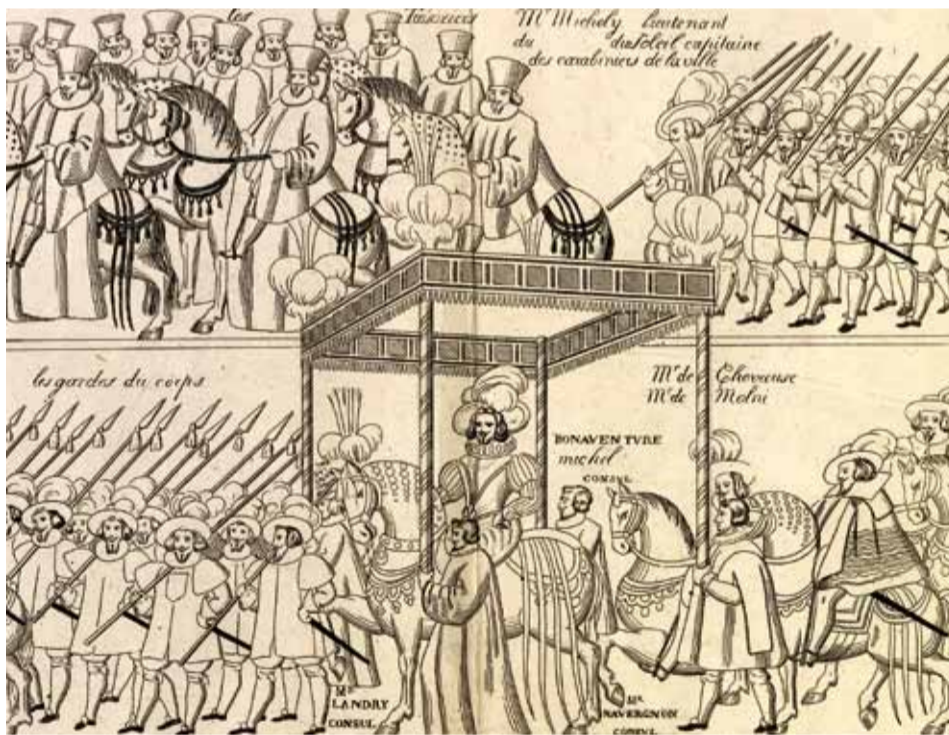 les
Mr. Michely lieutenant
du duSoleil capitaine
des carabiniers de la ville
les gardes du corps
Mr. de Chevreuse
Mr. de
BONAVENTVRE
michel
CONSUL
Mr.
LANDRY
CONSUL
Mr.
NAVERGNON
CONSUL